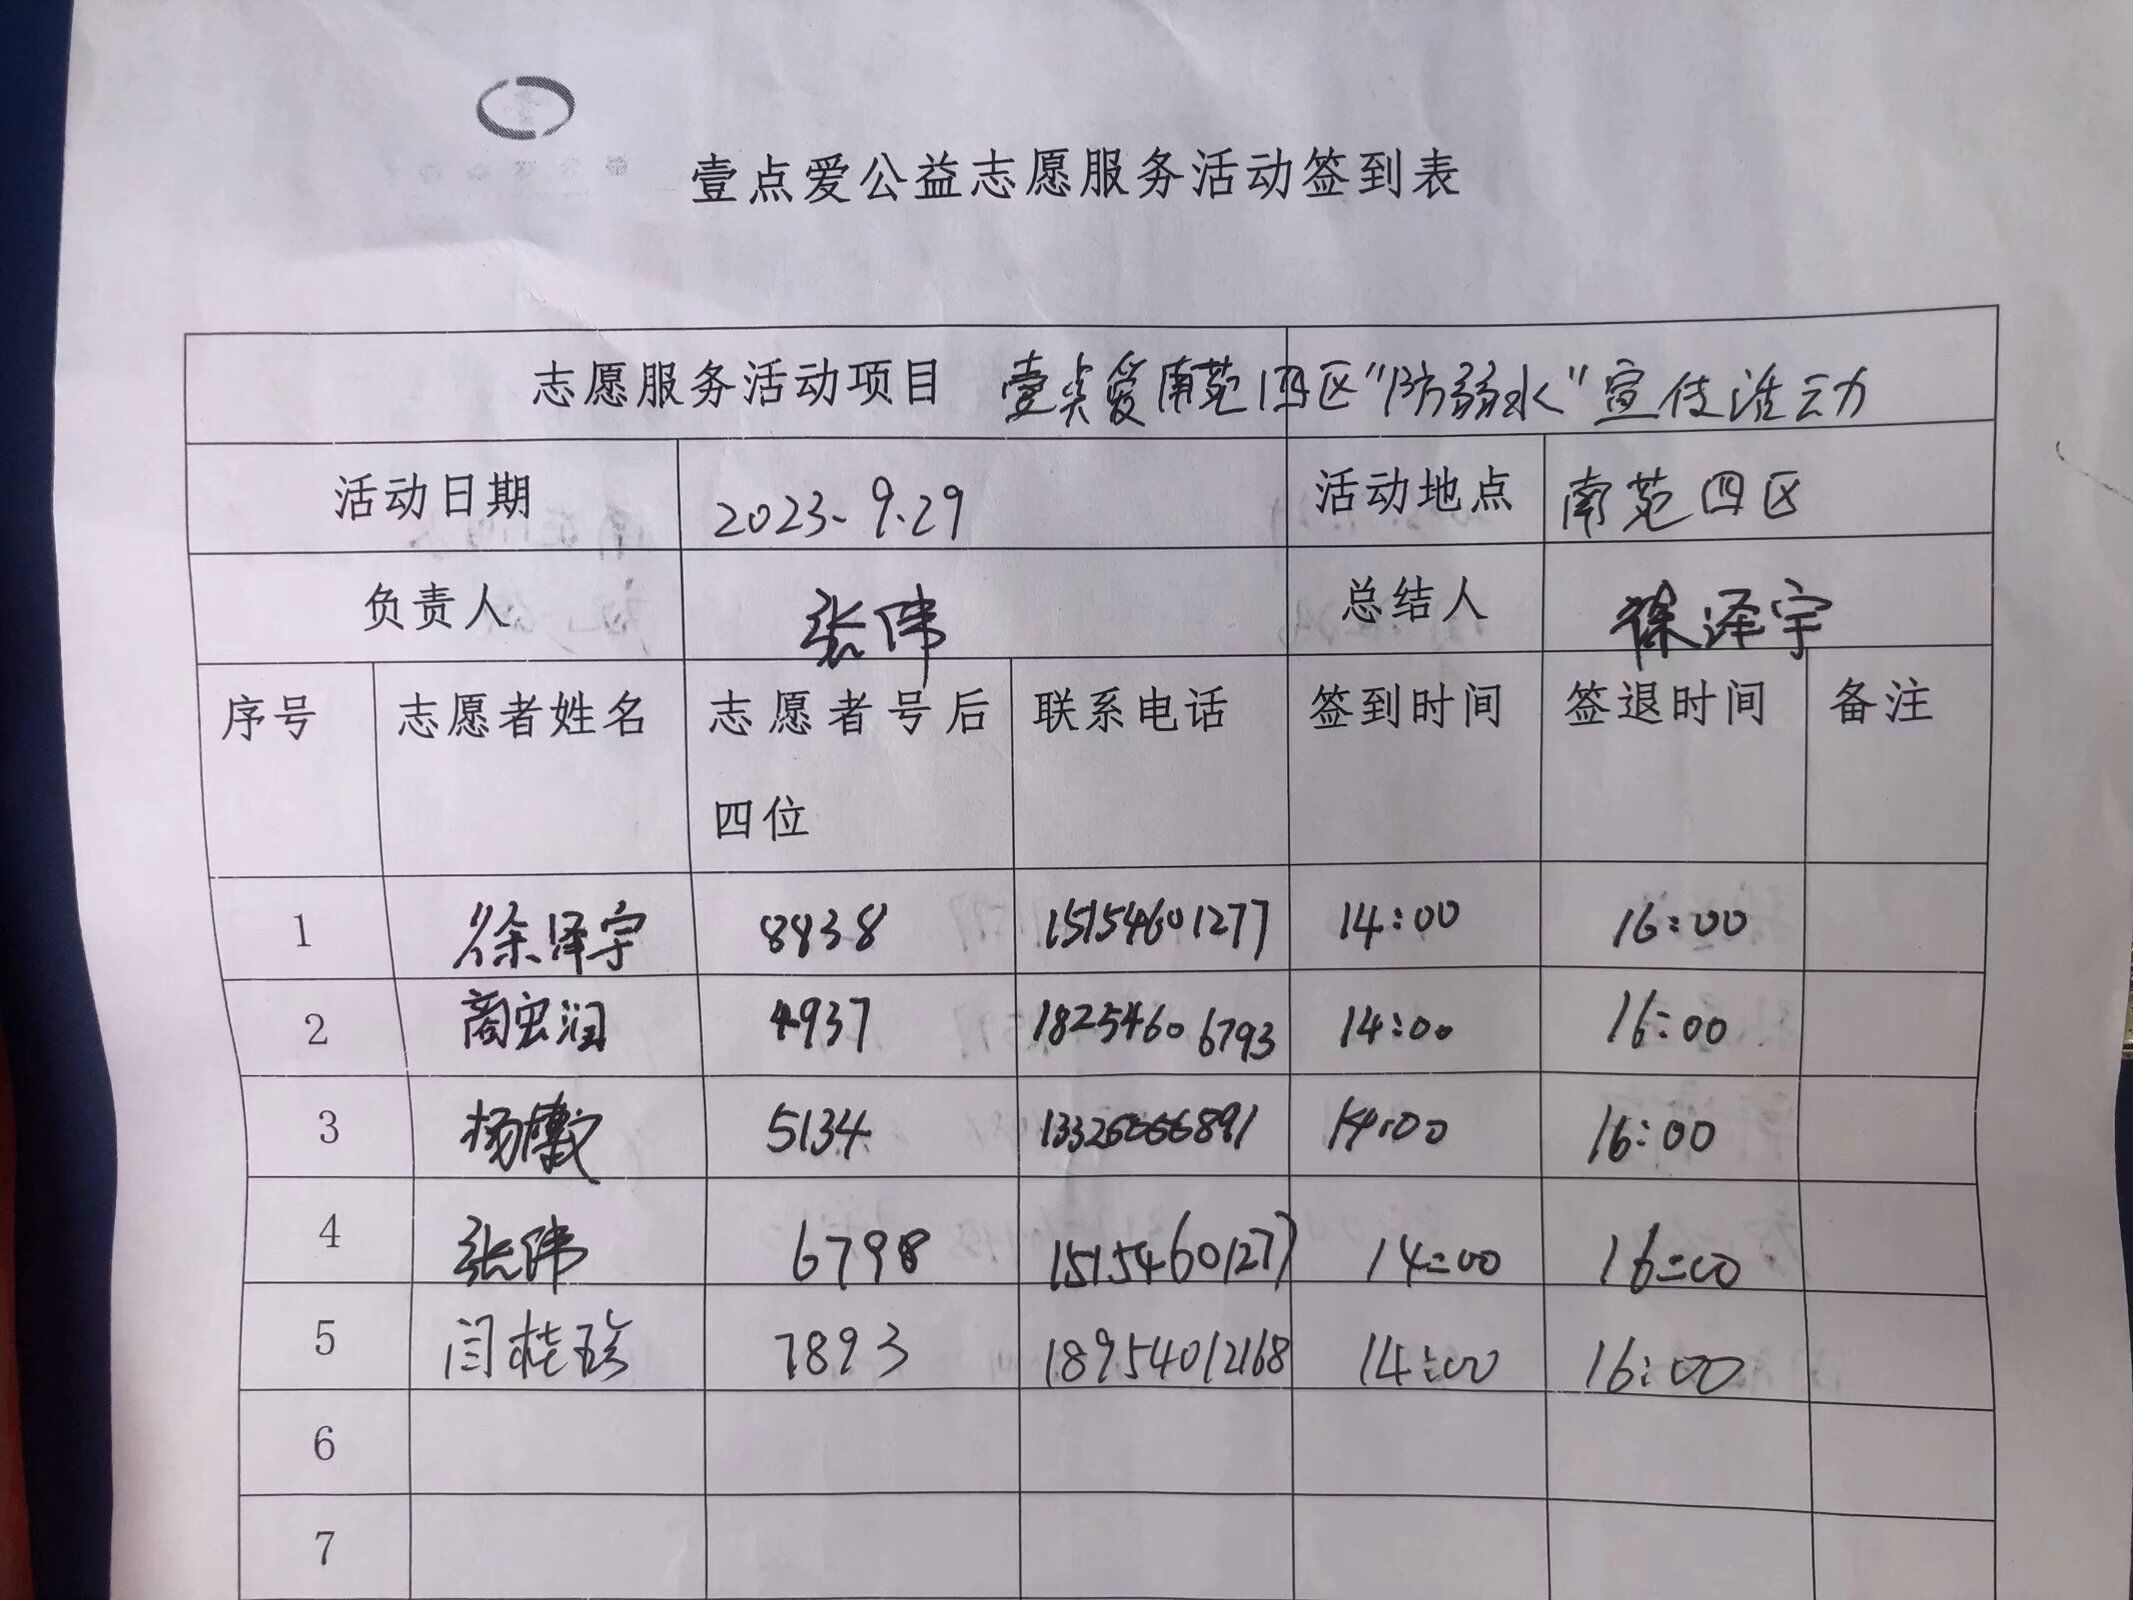 壹点爱公益志愿服务活动签到表
志愿服务活动项目 壹点爱南苑四区"防溺水"宣传活动
活动日期 2023.9.29 活动地点 南苑四区
负责人 张伟 总结人 徐泽宇
序号 志愿者姓名 志愿者号后 联系电话 签到时间 签退时间 备注
四位
1 徐泽宇 8838 15154601277 14:00 16:00
2 商宏润 4937 18254606793 14:00 16:00
3 杨 5134 14:00 16:00
4 张伟 6798 15154601277 14:00 16:00
5 闫桂珍 7893 18954012168 14:00 16:00
6
7